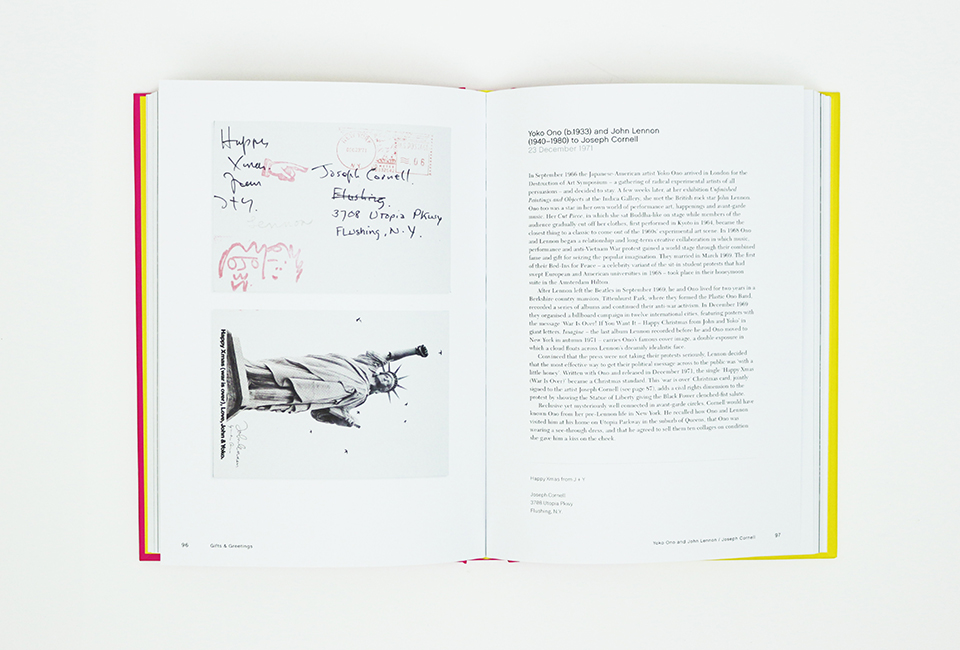 Happy
Xmas
from
J + Y.
Joseph Cornell.
Flushing.
3708 Utopia Pkwy
Flushing, N.Y.
N.Y.
Happy Xmas (war is over), Love, John & Yoko.
96
Gifts & Greetings
Yoko Ono (b.1933) and John Lennon
(1940–1980) to Joseph Cornell
23 December 1971
In September 1966 the Japanese-American artist Yoko Ono arrived in London for the
Destruction of Art Symposium – a gathering of radical experimental artists of all
persuasions – and decided to stay. A few weeks later, at her exhibition Unfinished
Paintings and Objects at the Indica Gallery, she met the British rock star John Lennon.
Ono too was a star in her own world of performance art, happenings and avant-garde
music. Her Cut Piece, in which she sat Buddha-like on stage while members of the
audience gradually cut off her clothes, first performed in Kyoto in 1964, became the
closest thing to a classic to come out of the 1960s' experimental art scene. In 1968 Ono
and Lennon began a relationship and long-term creative collaboration in which music,
performance and anti-Vietnam War protest gained a world stage through their combined
fame and gift for seizing the popular imagination. They married in March 1969. The first
of their Bed-Ins for Peace – a celebrity variant of the sit-in student protests that had
swept European and American universities in 1968 – took place in their honeymoon
suite in the Amsterdam Hilton.
After Lennon left the Beatles in September 1969, he and Ono lived for two years in a
Berkshire country mansion, Tittenhurst Park, where they formed the Plastic Ono Band,
recorded a series of albums and continued their anti-war activism. In December 1969
they organised a billboard campaign in twelve international cities, featuring posters with
the message 'War Is Over! If You Want It – Happy Christmas from John and Yoko' in
giant letters. Imagine – the last album Lennon recorded before he and Ono moved to
New York in autumn 1971 – carries Ono's famous cover image, a double exposure in
which a cloud floats across Lennon's dreamily idealistic face.
Convinced that the press were not taking their protests seriously, Lennon decided
that the most effective way to get their political message across to the public was 'with a
little honey'. Written with Ono and released in December 1971, the single 'Happy Xmas
(War Is Over)' became a Christmas standard. This 'war is over' Christmas card, jointly
signed to the artist Joseph Cornell (see page 87), adds a civil rights dimension to the
protest by showing the Statue of Liberty giving the Black Power clenched-fist salute.
Reclusive yet mysteriously well connected in avant-garde circles, Cornell would have
known Ono from her pre-Lennon life in New York. He recalled how Ono and Lennon
visited him at his home on Utopia Parkway in the suburb of Queens, that Ono was
wearing a see-through dress, and that he agreed to sell them ten collages on condition
she gave him a kiss on the cheek.
Happy Xmas from J + Y
Joseph Cornell
3708 Utopia Pkwy
Flushing, N.Y.
Yoko Ono and John Lennon / Joseph Cornell
97